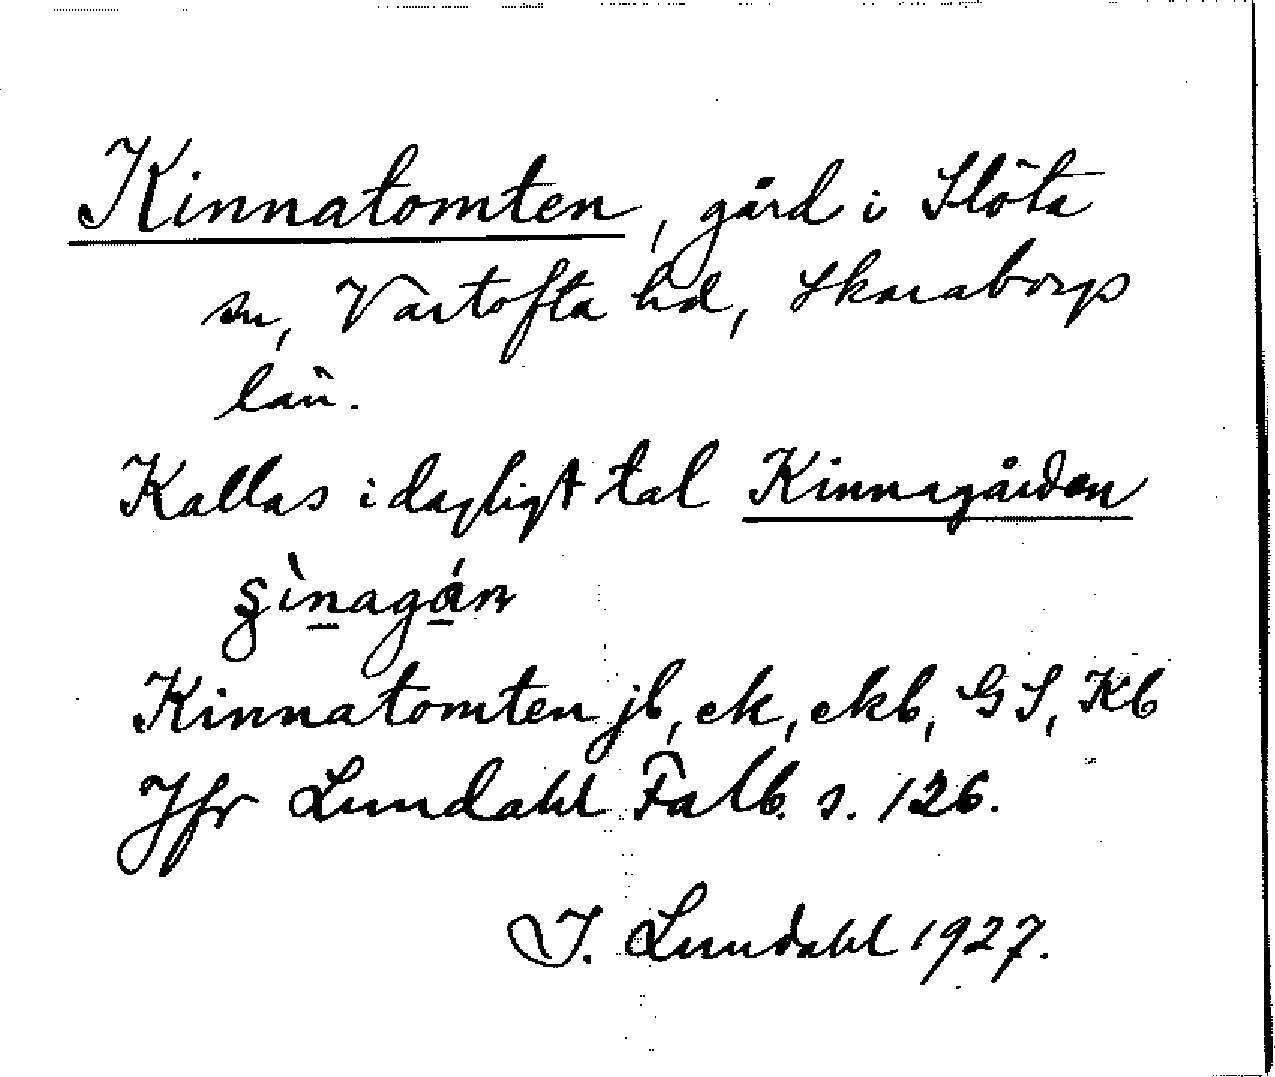 Kinnatomten, gård i Slöta
sn, Vartofta hd, Skaraborgs
län.
Kallas i dagligt tal Kinnagården
Kinnatomten jb, ek, ekb, GS, Kb
Jfr Lundahl Falb. s. 126.
I. Lundahl 1927.